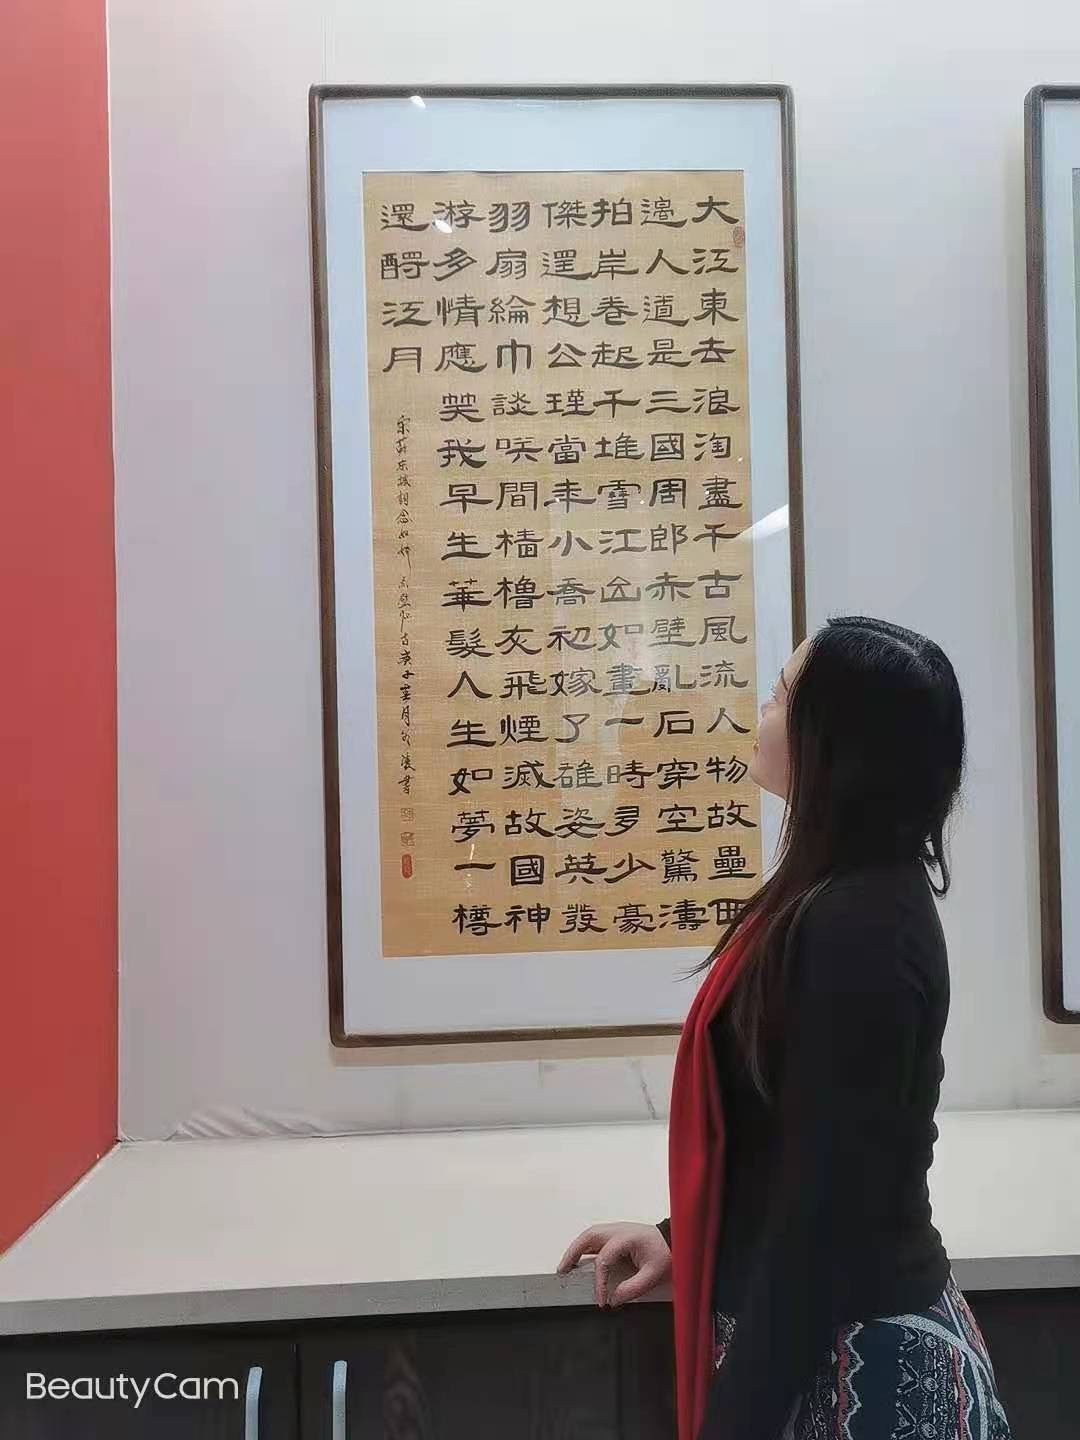 大江東去浪淘盡千古風流人物故壘西
邊人道是三國周郎赤壁亂石穿空驚濤
拍岸卷起千堆雪江山如畫一時多少豪
傑遥想公瑾當年小喬初嫁了雄姿英發
羽扇綸巾談咲間檣櫓灰飛煙滅故國神
游多情應笑我早生華髮人生如夢一樽
還酹江月
宋蘇東坡詞念奴嬌赤壁懷古庚子月書
BeautyCam